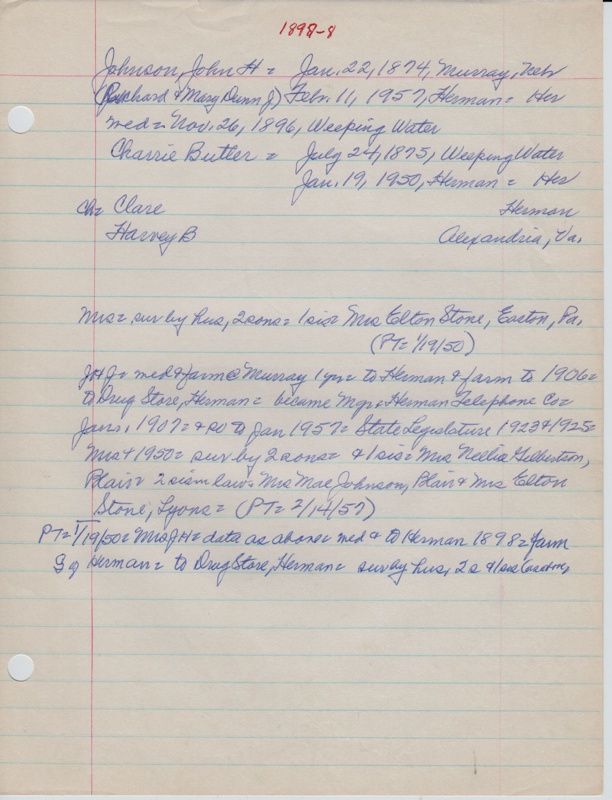 1898-8
Johnson, John H = Jan. 22, 1874, Murray, Nebr
& Mary Dunn J) Febr. 11, 1957, Herman = Her
med = Nov. 26, 1896, Weeping Water
Charrie Butler = July 24, 1875, Weeping Water
Jan. 19, 1950, Herman = Her
Ch = Clare Herman
Harvey B Alexandria, Va.
Mrs = sur by hus, 2 sons = 1 sis = Mrs Elton Stone, Easton, Pa.
(PT = 1/19/50)
JHJ = med & farm @ Murray 1 yr = to Herman & farm to 1906 =
to Drug Store, Herman = became Mgr = Herman Telephone Co =
Jan 1, 1907 = & so to Jan 1957 = State Legislature 1923 & 1925 =
Mrs + 1950 = sur by 2 sons = & 1 sis = Mrs Nellie Gilbertson,
Blair = 2 sis in law = Mrs Mae Johnson, Blair & Mrs Elton
Stone, Lyons = (PT = 2/14/57)
PT = 1/19/50 = Mrs JH = data as above = med & to Herman 1898 = farm
S of Herman = to Drug Store, Herman = sur by hus, 2 s & 1 sis